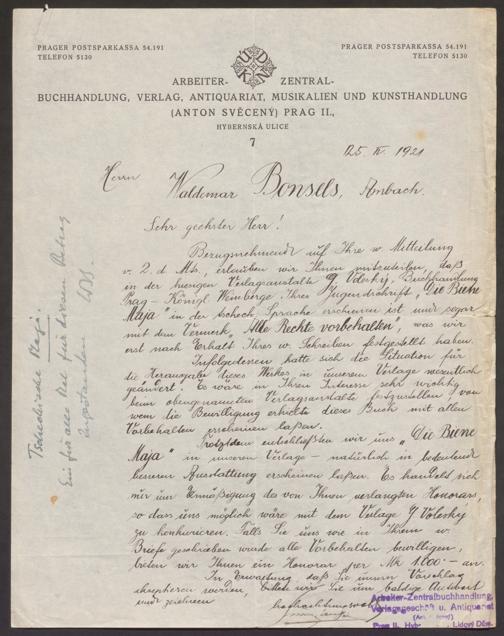 PRAGER POSTSPARKASSA 54.191
TELEFON 5130
PRAGER POSTSPARKASSA 54.191
TELEFON 5130
ARBEITER- ZENTRAL-
BUCHHANDLUNG, VERLAG, ANTIQUARIAT, MUSIKALIEN UND KUNSTHANDLUNG
(ANTON SVĚCENÝ) PRAG II.,
HYBERNSKÁ ULICE
7
25. IV. 1921
Herrn
Waldemar Bonsels, Ambach.
Sehr geehrter Herr!
Bezugnehmend auf Ihre w. Mitteilung
v. 2. d. Mts., erlauben wir Ihnen mitzuteilen, daß
in der hiesigen Verlagsanstalt Voleský, Buchhandlung
Prag – Königl. Weinberge, Ihres Jugendschrift, „Die Biene
Maja" in der tschech. Sprache erschienen ist und sogar
mit dem Vermerk, „Alle Rechte vorbehalten", was wir
erst nach Erhalt Ihres w. Schreiben festgestellt haben.
Infolgedessen hatte sich die Situation für
die Herausgabe dieses Werkes in unserem Verlage wesentlich
geändert. Es wäre in Ihren Interesse sehr wichtig
beim obengenannten Verlagsanstalte festzustellen, von
wem die Bewilligung erhielte dieses Buch mit allen
Vorbehalten erscheinen laßen.
Trotzdem entschließten wir uns „Die Biene
Maja" in unseren Verlage – natürlich in bedeutend
besseren Ausstattung erscheinen laßen. Es handelt sich
nur um Ermäßigung des von Ihnen verlangten Honorars,
so dass uns möglich wäre mit dem Verlage Voleský
zu konkurieren. Falls Sie uns wie in Ihrem w.
Briefe geschrieben wurde alle Vorbehalten bewilligen,
bieten wir Ihnen ein Honorar per Mk 1.000 – an.
In Erwartung, daß Sie unseren Vorschlag
akzeptieren werden, bitten wir Sie um baldige Antwort
und zeichnen
hochachtungsvoll
Arbeiter-Zentralbuchhandlung,
Verlagsgeschäft u. Antiquariat
Prag II., Hybernská Lidový Dům
Tschechische Maja:
Ein für alle Mal für diesen Betrag